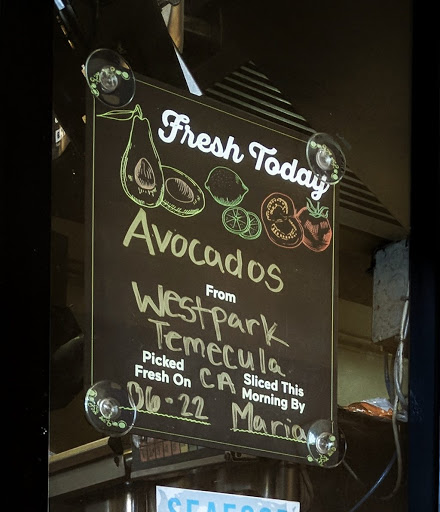 Fresh Today
Avocados
From
Westpark
Temecula
CA
Picked
Fresh On
06-22
Sliced This
Morning By
Maria
SEAFOOD